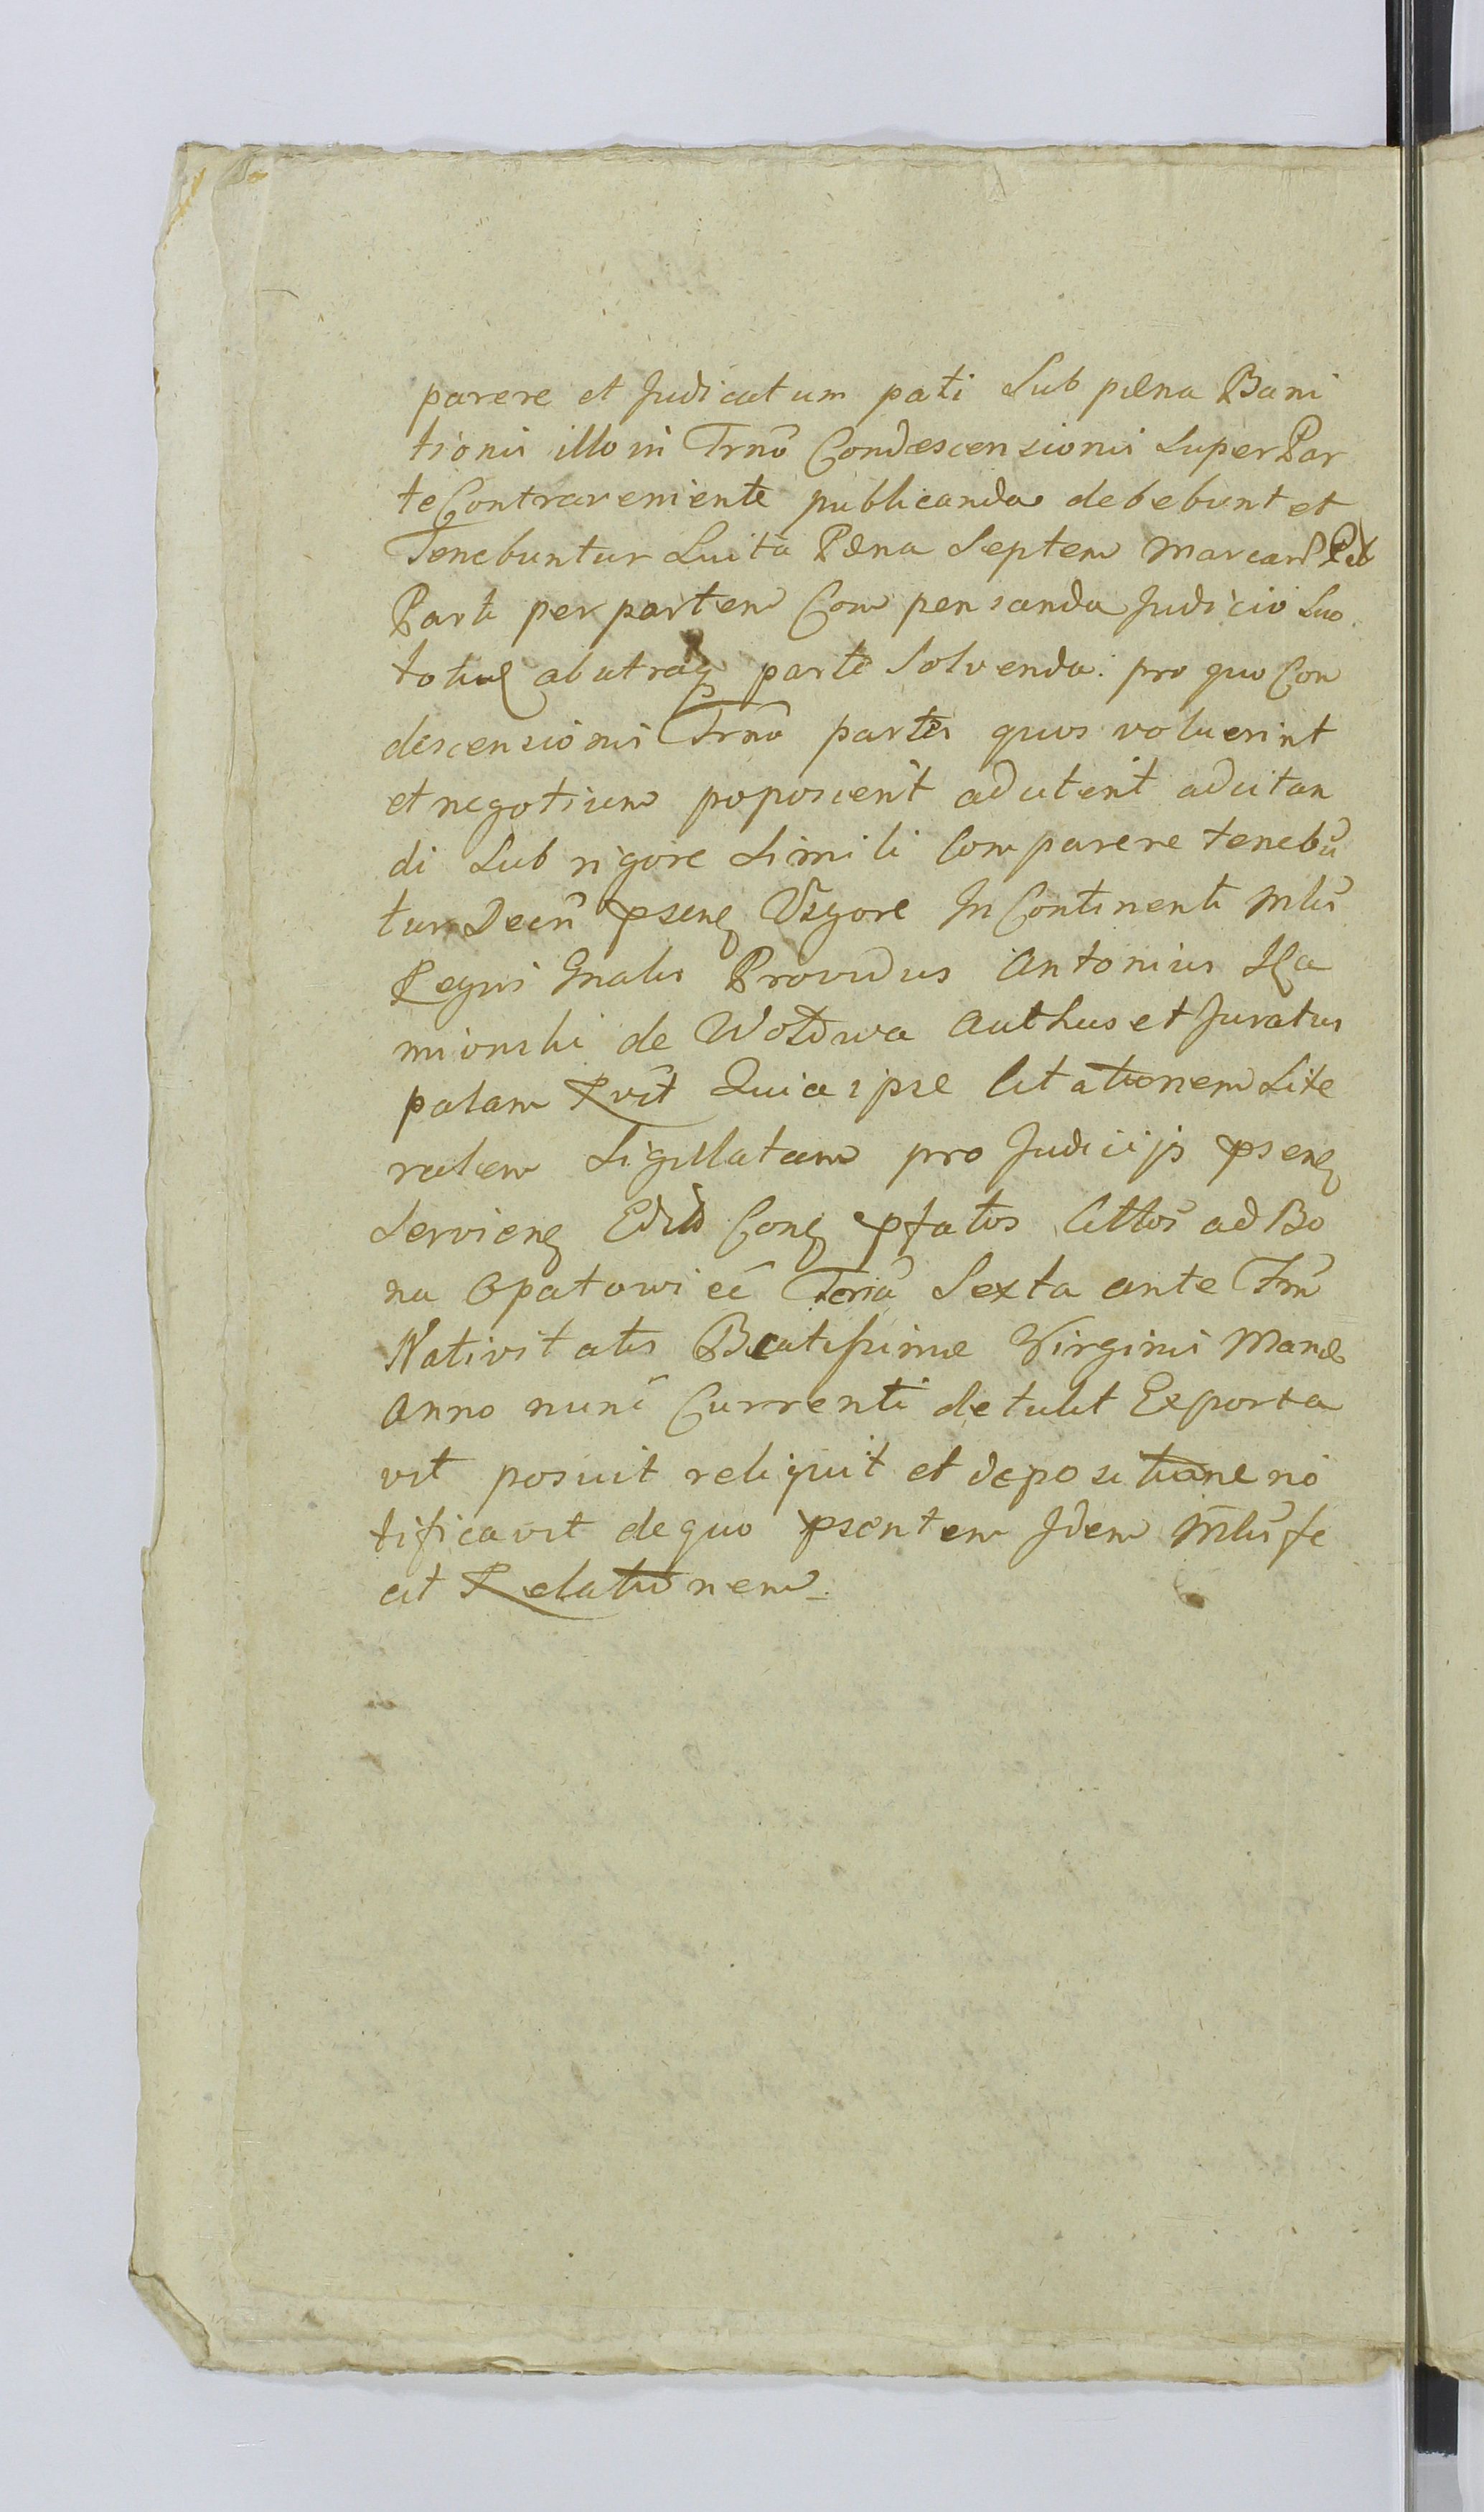 parere et Judicatum pati Sub pœna Bani
tionis illo in Trnō Condescensionis Super Par
te Contraveniente publicanda debebunt et
Tenebuntur Luita Pœna Septem Marcar̃ Pel
Parti per partem Com pensanda Judicio Suo
totieȝ ab utraqȝ parte Solvenda: pro quo Con
descensionis Trnō partes quos voluerint
et negotium poposcerit aduterit aducitan
di Sub rigore Simili Comparere tenebũ
tur Decrī pseneȝ Vigore In Continenti Mlrī
Regni Gnalis Providus Antonius Ka
mionski de Wotowa Authus et Juratus
palam Rvit Quia ipse Citationem Lite
ralem Sigillatam pro Judicijs pseneȝ
Servieneȝ Conȝ pfatos Cittos̃ ad Bo
na Opatowiec̃ Feriā Sexta ante Fm̃
Nativitatis Beatissimæ Virginis Mariæ
Anno nunc̃ Currenti detulit Exporta
vit posuit reliquit et depositione no
tificavit de quo psentem Idem M̃lrĩ fe
cit Relationem